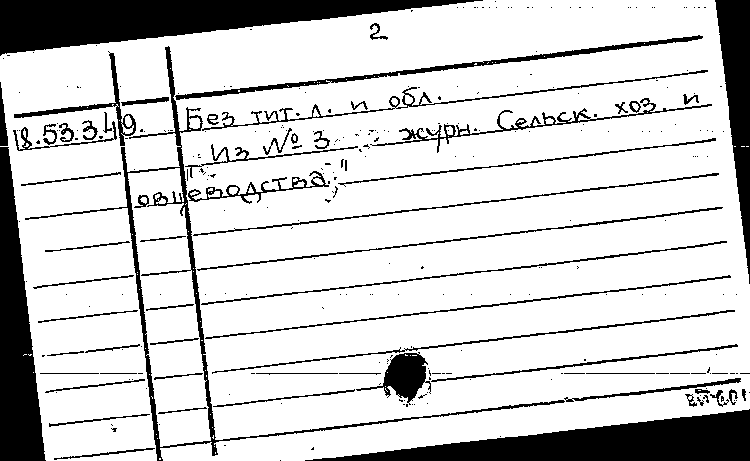 2
18.53.3.49. Без тит. л. и обл.
"Из № 3 журн. Сельск. хоз. и
овцеводства."